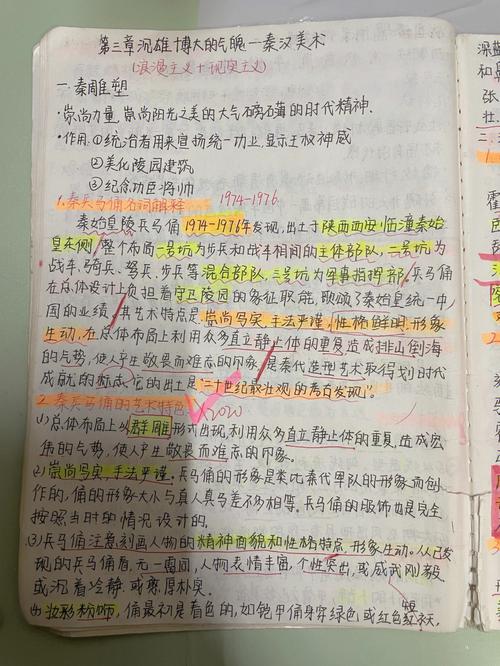 第三章沉雄博大的气魄—秦汉美术
(浪漫主义+现实主义)
一.秦雕塑
·崇尚力量,崇尚阳光之美的大气磅礴的时代精神.
·作用.①统治者用来宣扬统一功业,显示王权神威
②美化陵园建筑
③纪念功臣将帅
1.秦兵马俑名词解释 1974-1976.
秦始皇陵兵马俑1974-1976年发现,出土于陕西西安临潼秦始
皇东侧.整个布局一号坑为步兵和战车相间的主体部队,二号坑为
战车、骑兵、弩兵、步兵等混合部队,三号坑为军事指挥部.兵马俑
在总体设计上负担着守卫陵园的象征职能,歌颂了秦始皇统一中
国的业绩.其艺术特点是.崇尚写实,手法严谨,性格鲜明,形象
生动,在总体布局上利用众多直立静止体的重复造成排山倒海
的气势,使人产生敬畏而难忘的印象.是秦代造型艺术取得划时代
成就的标志,它的出土是"二十世纪最壮观的考古发现".
2.秦兵马俑的艺术特色 2020
(1)总体布局上以群雕形式出现,利用众多直立静止体的重复,造成宏
伟的气势,使人产生敬畏而难忘的印象.
(2)崇尚写实,手法严谨.兵马俑的形象是类比秦代军队的形象而创
作的,俑的形象大小与真人真马差不多相等.兵马俑的服饰也是完全
按照当时的情况设计的.
(3)兵马俑注意刻画人物的精神面貌和性格特点,形象生动.从已发
现的兵马俑看,无一雷同,人物表情丰富,个性突出,或威武刚毅
或沉着冷静.或憨厚朴实.
(4)妆彩 俑最初是着色的,如铠甲俑身穿绿色或红色
深蓝
和
张
壮
二.
霍